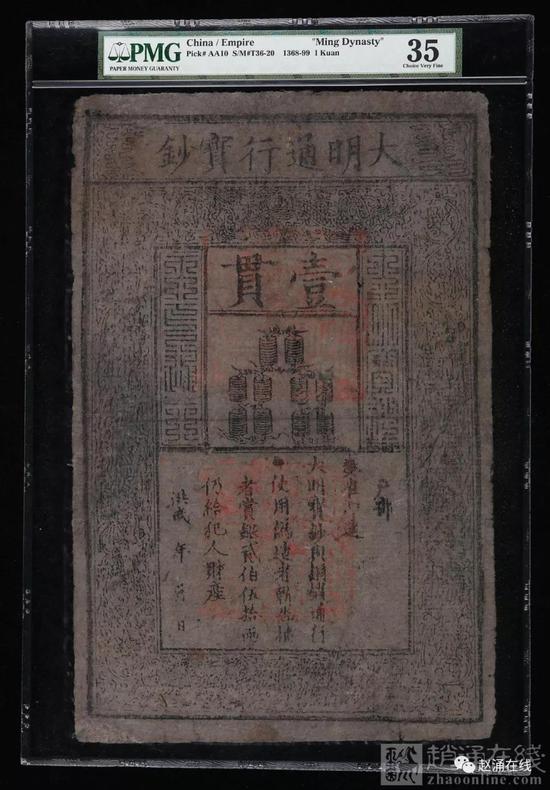 PMG
PAPER MONEY GUARANTY
China / Empire "Ming Dynasty"
Pick# AA10 S/M#T36-20 1368-99 1 Kuan
35
Choice Very Fine
大明通行寳鈔
壹貫
戶部
奏准印造
大明寳鈔與銅錢通行
使用偽造者斬告捕
者賞銀貳伯伍拾兩
仍給犯人財產
洪武 年 月 日
趙涌在线
zhaoonline.com
赵涌在线